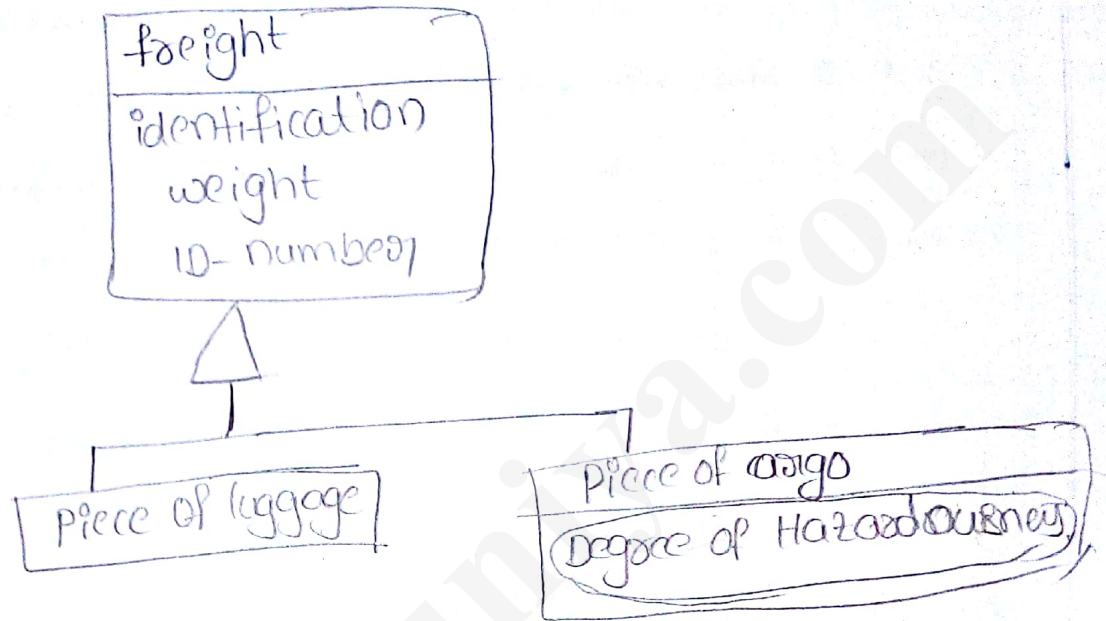 freight
identification
weight
ID-number
Piece of luggage
Piece of cargo
Degree of Hazardousness